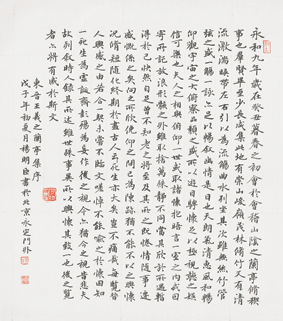 永和九年歲在癸丑暮春之初會於會稽山陰之蘭亭脩稧
事也羣賢畢至少長咸集此地有崇山峻領茂林脩竹又有清
流激湍暎帶左右引以為流觴曲水列坐其次雖無絲竹管
弦之盛一觴一詠亦足以暢敘幽情是日也天朗氣清惠風和暢
仰觀宇宙之大俯察品類之盛所以遊目騁懷足以極視聽之娛
信可樂也夫人之相與俯仰一世或取諸懷抱悟言一室之內或因
寄所託放浪形骸之外雖取捨萬殊靜躁不同當其欣於所遇暫
得於己快然自足曾不知老之將至及其所之既惓情隨事遷
感慨係之矣向之所欣俛仰之間已為陳跡猶不能不以之興懷
況脩短隨化終期於盡古人云死生亦大矣豈不痛哉每覽昔
人興感之由若合一契未嘗不臨文嗟悼不能喻之於懷固知
一死生為虛誕齊彭殤為妄作後之視今亦猶今之視昔悲夫
故列敘時人錄其所述雖世殊事異所以興懷其致一也後之覽
者亦將有感於斯文
東晉王羲之蘭亭集序
戊子年初夏月楊明臣書於北京永定門外